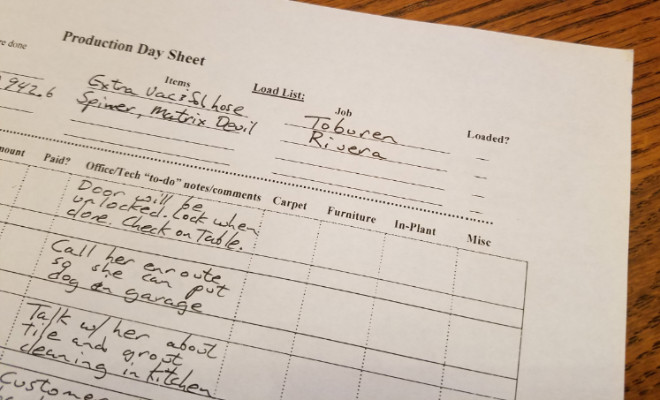 re done
Production Day Sheet
942.6
Items
Load List:
Job
Loaded?
Extra Vac & Sol hose
Toburen
Spinner, Matrix Devil
Rivera
mount
Paid?
Office/Tech "to-do" notes/comments
Carpet
Furniture
In-Plant
Misc
Door will be
unlocked. Lock when
done. Check on Table.
Call her enroute
so she can put
dog in garage
Talk w/ her about
tile and grout
cleaning in kitchen
Customer